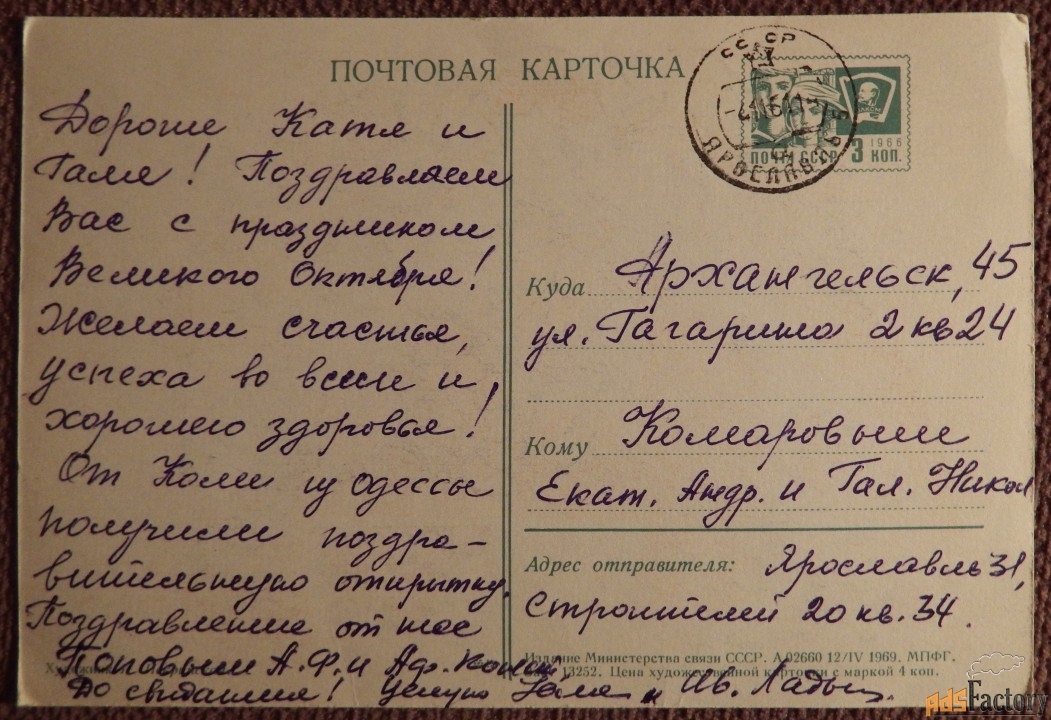 ПОЧТОВАЯ КАРТОЧКА
СССР
ЯРОСЛАВЛЬ
ПОЧТА СССР
1966
3 КОП.
Дорогие Катя и
Галя! Поздравляем
Вас с праздником
Великого Октября!
Желаем счастья,
успеха во всем и
хорошего здоровья!
От Коли из Одессы
получили поздра-
вительную открытку.
Поздравление от нас
Поповым А.Ф. и
До свидания! Целую
и Ив.
Куда Архангельск, 45
ул. Гагарина 2 кв 24
Кому Комаровым
Екат. Андр. и Гал. Никол
Адрес отправителя: Ярославль 31,
Строителей 20 кв. 34.
Издание Министерства связи СССР. А 02660 12/IV 1969. МПФГ.
13252. Цена художественной карточки с маркой 4 коп.
AdsFactory